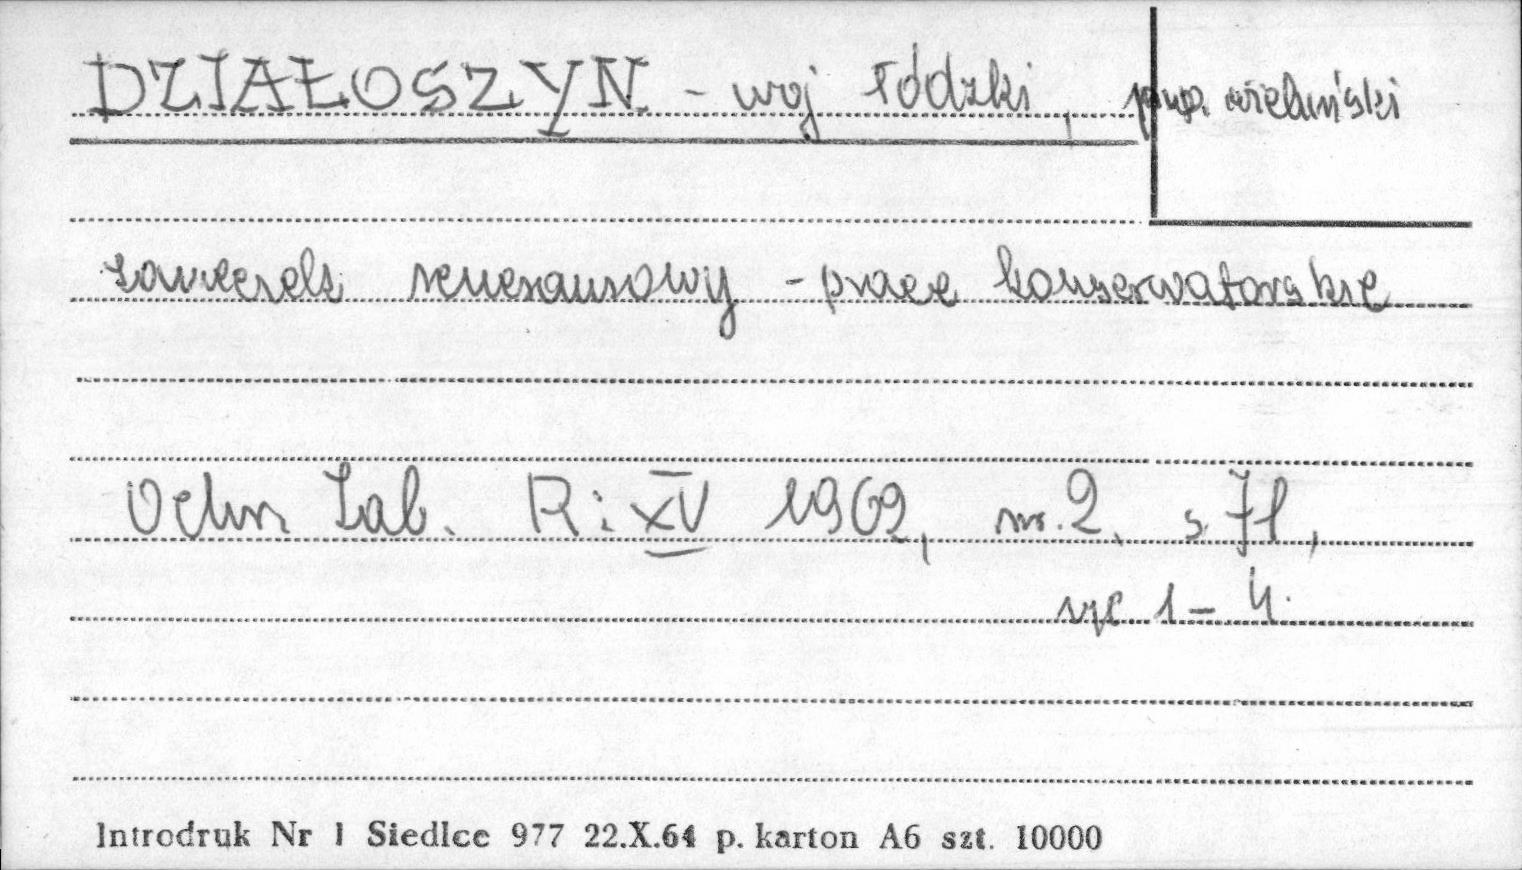 DZIAŁOSZYN - woj łódzki, pow. wieluński
zameczek renesansowy - prace konserwatorskie
Ochr Zab. R: XV 1962, nr. 2, s. 71,
ryc 1 - 4.
Introdruk Nr 1 Siedlce 977 22.X.64 p. karton A6 szt. 10000